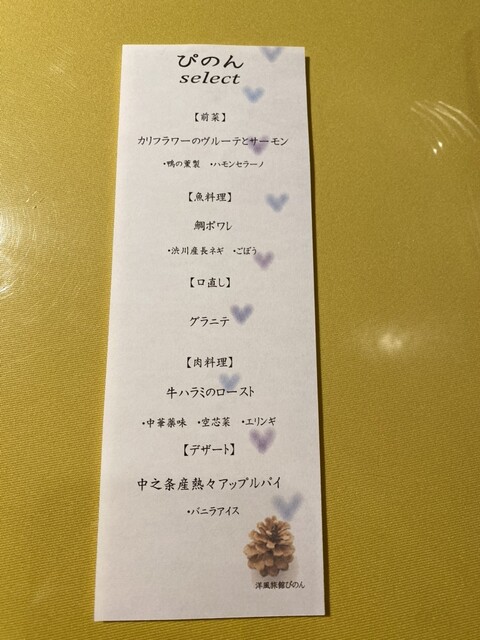 ぴのん
select
【前菜】
カリフラワーのヴルーテとサーモン
・鴨の薫製 ・ハモンセラーノ
【魚料理】
鯛ポワレ
・渋川産長ネギ ・ごぼう
【口直し】
グラニテ
【肉料理】
牛ハラミのロースト
・中華薬味 ・空芯菜 ・エリンギ
【デザート】
中之条産熱々アップルパイ
・バニラアイス
洋風旅館ぴのん